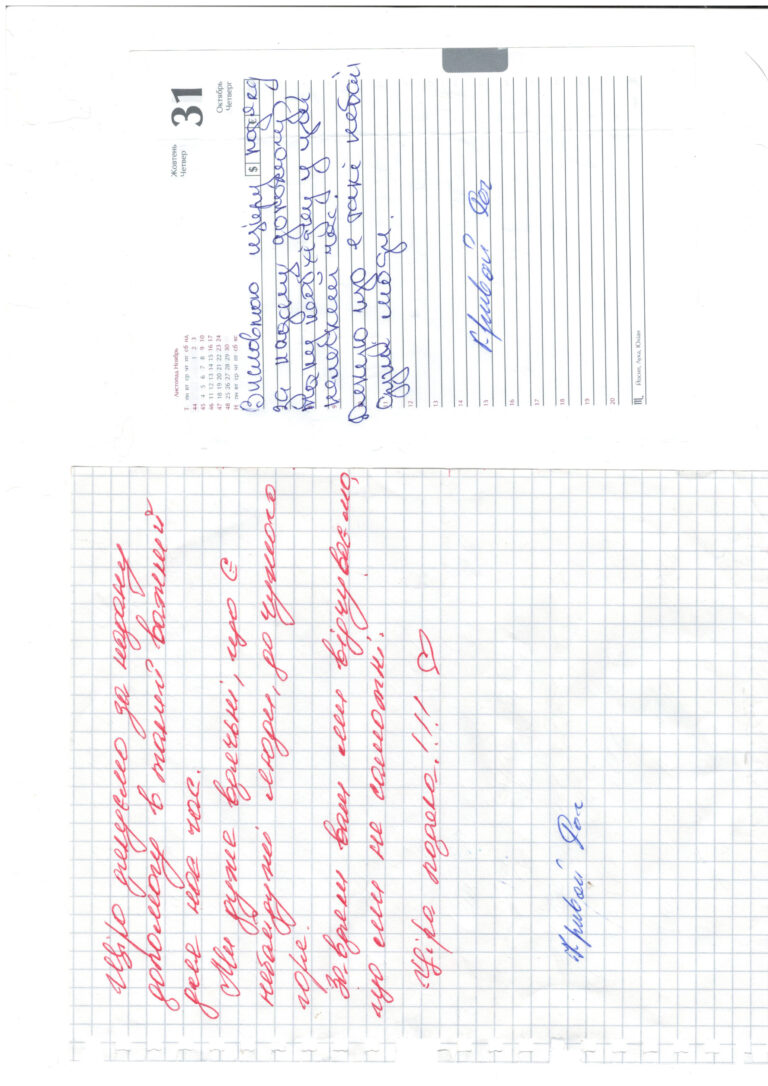 Жовтень
Четвер
31
Октябрь
Четверг
Листопад Ноябрь
Т пн вт ср чт пт сб нд
44 1 2 3
45 4 5 6 7 8 9 10
46 11 12 13 14 15 16 17
47 18 19 20 21 22 23 24
48 25 26 27 28 29 30
Н пн вт ср чт пт сб вс
Висловлюю щиру подяку
за надану допомогу
таку необхідну у цей
нелегкий час.
Дякую що є такі небай
дужі люди.
г. Кривой Рог
12
13
14
15
16
17
18
19
20
Щіро дякуємо за надану
допомогу в такий важкий
для нас час.
Ми дуже вдячні, що є
небайдужі люди, до чужого
горя.
Завдяки вам ми відчуваємо,
що ми не самотні.
Щіра подяка!!!
г. Кривой Рог